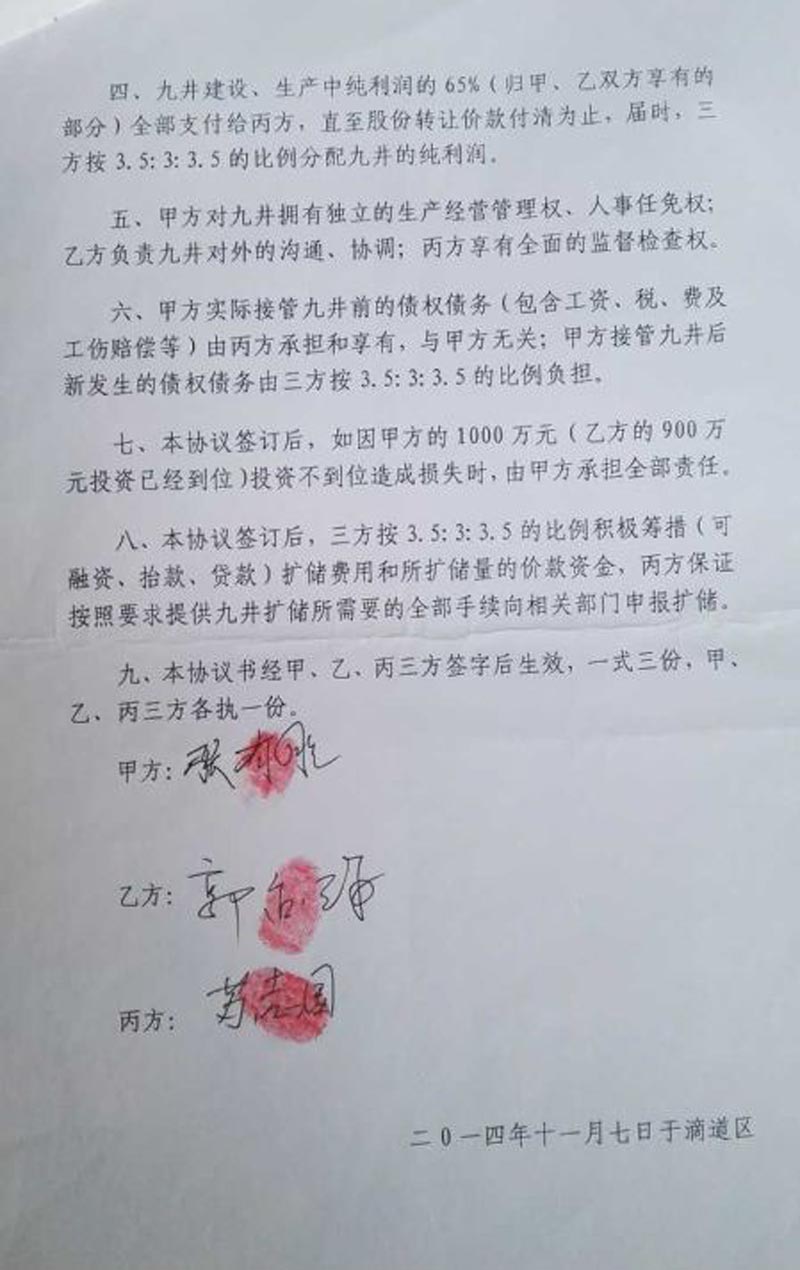 四、九井建设、生产中纯利润的65%（归甲、乙双方享有的
部分）全部支付给丙方，直至股份转让价款付清为止，届时，三
方按3.5:3:3.5的比例分配九井的纯利润。
五、甲方对九井拥有独立的生产经营管理权、人事任免权；
乙方负责九井对外的沟通、协调；丙方享有全面的监督检查权。
六、甲方实际接管九井前的债权债务（包含工资、税、费及
工伤赔偿等）由丙方承担和享有，与甲方无关；甲方接管九井后
新发生的债权债务由三方按3.5:3:3.5的比例负担。
七、本协议签订后，如因甲方的1000万元（乙方的900万
元投资已经到位）投资不到位造成损失时，由甲方承担全部责任。
八、本协议签订后，三方按3.5:3:3.5的比例积极筹措（可
融资、抬款、贷款）扩储费用和所扩储量的价款资金，丙方保证
按照要求提供九井扩储所需要的全部手续向相关部门申报扩储。
九、本协议书经甲、乙、丙三方签字后生效，一式三份，甲、
乙、丙三方各执一份。
甲方：
乙方：郭
丙方：
二0一四年十一月七日于滴道区